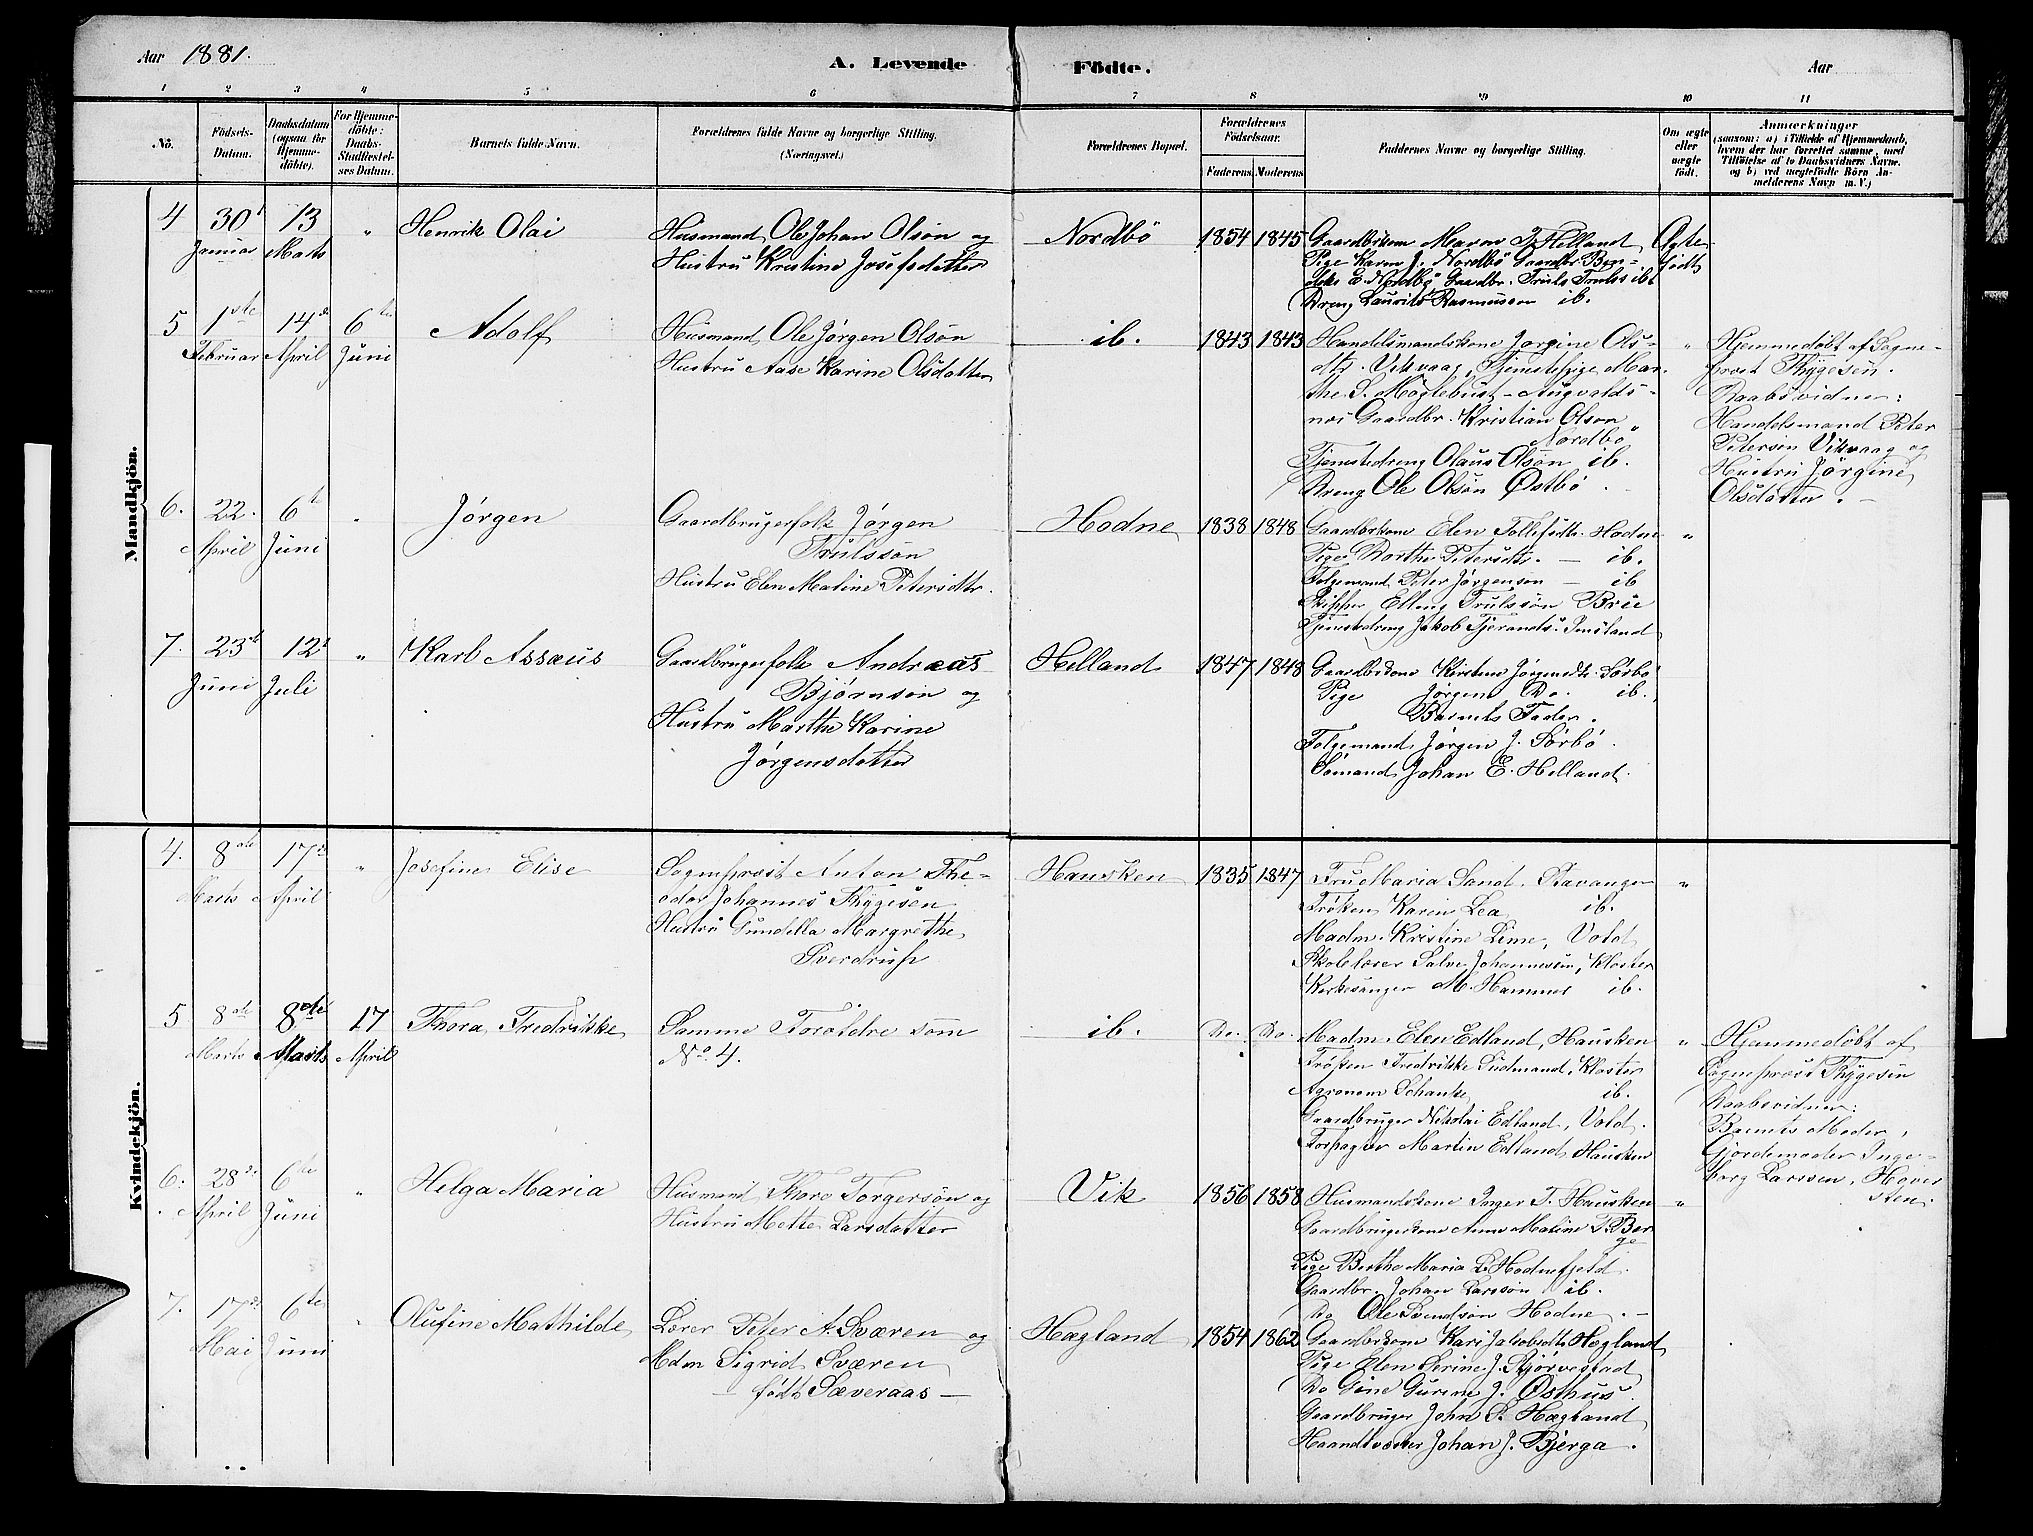 Aar 1881.
A. Levende Födte.
Aar
1 2 3 4 5 6 7 8 9 10 11
No.
Födsels-Datum.
Daabsdatum (ogsaa for Hjemmedöbte).
For Hjemmedöbte: Daabs-Stadfæstelses Datum.
Barnets fulde Navn.
Forældrenes fulde Navne og borgerlige Stilling.
(Næringsvei.)
Forældrenes Bopæl.
Forældrenes Födselsaar.
Faderens Moderens
Faddernes Navne og borgerlige Stilling.
Om ægte eller uægte födt.
Anmærkninger
(saasom: a) i Tilfælde af Hjemmedaab,
hvem der har forrettet samme, med
Tilföielse af to Daabsvidners Navne.
og b) ved uægtefödte Börn An-
melderens Navn m. V.)
Mandkjön.
4 30te Januar
13 Marts
"
Henrik Olai
Husmand Ole Johan Olsön og
Hustru Kristine Josefsdatter
Nordbö
1854 1845
Gaardbrkone Maren J. Helland
Pige Karen J. Nordbö Gaardbr. Ben-
dik E. Nordbö Gaardbr. Truls Trulss ib.
Dreng Laurits Rasmussen ib.
Ægte
födt
5 1ste Februar
14de April
6te Juni
Adolf
Husmand Ole Jørgen Olsön
Hustru Aase Karine Olsdatter
ib.
1843 1843
Handelsmandskone Jørgine Ols-
dtr. Vikvaag, Tjenestepige Mar-
the S. Møglebust – Augvalds-
nes Gaardbr. Kristian Olsen
Nordbø
Tjenestedreng Olaus Olsön ib.
Dreng Ole Olsön Østbö.
"
Hjemmedøbt af Sogne-
prest Thygesen.
Daabsvidner:
Handelsmand Peter
Petersen Vikvaag og
Hustru Jørgine
Olsdatter. –
6. 22. April
6te Juni
"
Jørgen
Gaardbrugerfolk Jørgen
Trulssön
Hustru Elen Maline Petersdtr.
Hodne
1838 1848
Gaardbrkone Elen Tollefsdtr. Hodne
Pige Dorthe Petersdtr. – ib.
Følgemand Peter Jørgensön – ib
Skipper Elling Trulssön Brie
Tjenestedreng Jakob Tjerands.
"
7. 23de Juni
12te Juli
"
Karl Assæus
Gaardbrugerfolk Andreas
Bjørnsön og
Hustru Marthe Karine
Jørgensdatter
Helland
1847 1848
Gaardbrkone Kirstine Jørgensdtr. Sørbø
Pige Jørgine Do. ib.
Barnets Fader.
Følgemand Jørgen J. Sørbø.
Sømand Johan E. Helland.
Kvindekjön.
4. 8de Marts
17de April
"
Josefine Elise
Sogneprest Anton The-
odor Johannes Thygesen
Hustru Gundella Margrethe
Sverdrup
Hausken
1835 1847
Fru Maria Sand. Stavanger
Frøken Karin Lea ib.
Madm. Kristine Lime, Vold
Skolelærer Salve Johannesen, Kloster
Kirkesanger M. Hammer ib.
"
5 8de Marts
8de Marts
17 April
Thora Fredrikke
Samme Forældre som
No 4.
ib.
Do. Do.
Madm. Elen Edland, Hausken
Frøken Fredrikke Sudmand, Kloster
Agronom Schanke, ib.
Gaardbruger Nikolai Edland, Vold.
Forpagter Martin Edland, Hausken
"
Hjemmedøbt af
Sogneprest Thygesen
Daabsvidner:
Barnets Moder,
Gjordemoder Inge-
borg Larssen, Haver
sten.
6. 28de April
6te Juni
"
Helga Maria
Husmand Thore Torgersön og
Hustru Mette Larsdatter
Vik
1856 1858
Husmandskone Inger T. Hausken
Gaardbrugerkone Anne Maline T. Ber
ge
Pige Berthe Maria L. Hodnefjeld.
Gaardbr. Johan Larssön ib.
Do Ole Svendsön Hodne. –
"
7. 17de Mai
6te Juni
"
Olufine Mathilde
Lærer Peter A. Sværen og
Mdm Sigrid Sværen
– født Sæveraas –
Hægland
1854 1862
Gaardbrkone Kari Jakobsdtr. Hegland
Pige Elen Serine J. Bjørvestad
Do Gine Gurine J. Østhus.
Gaardbruger John S. Hægland
Haandverker Johan J. Bjerga.